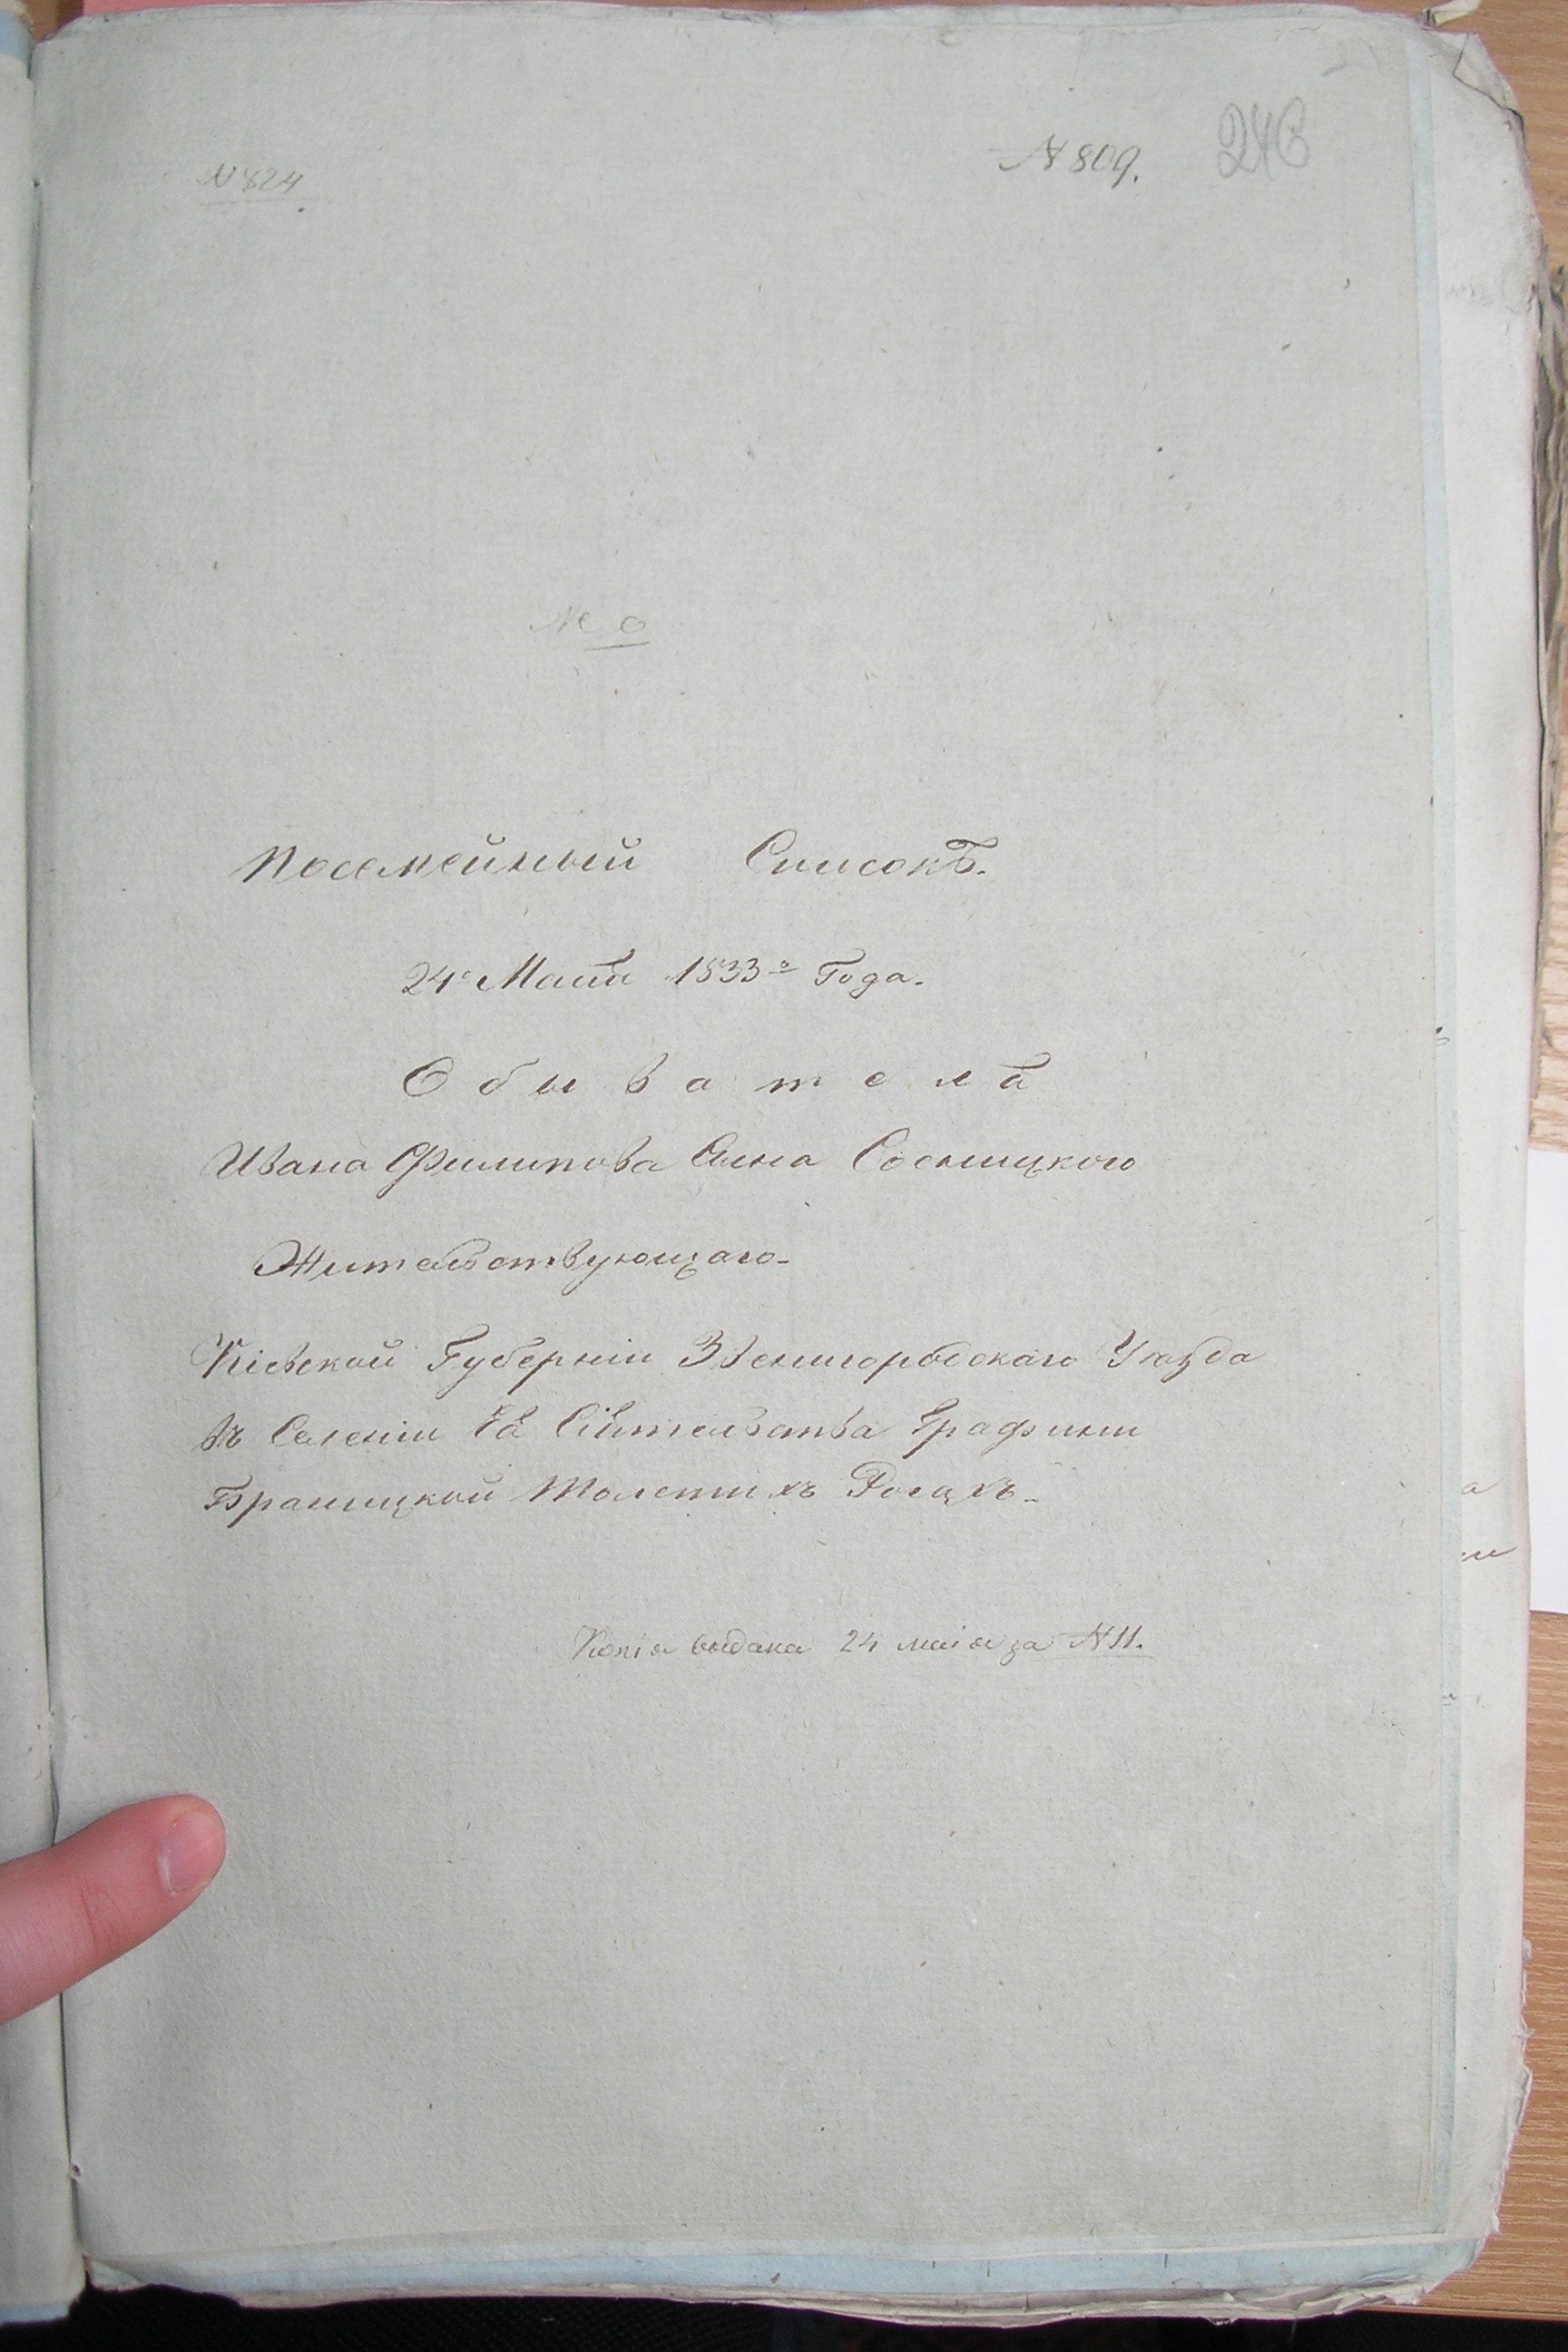 № 824
№ 809.
246
Посемейный Списокъ.
24го Маія 1833го Года.
Обывателя
Ивана Филипова Сына Сосницкого
Жительствующаго
Кіевской Губерніи Звенигородскаго Уезда
въ Селеніи Ея Сіятельства Графини
Браницкой Толстыхъ Рогахъ
Копія выдана 24 маія за № 11.